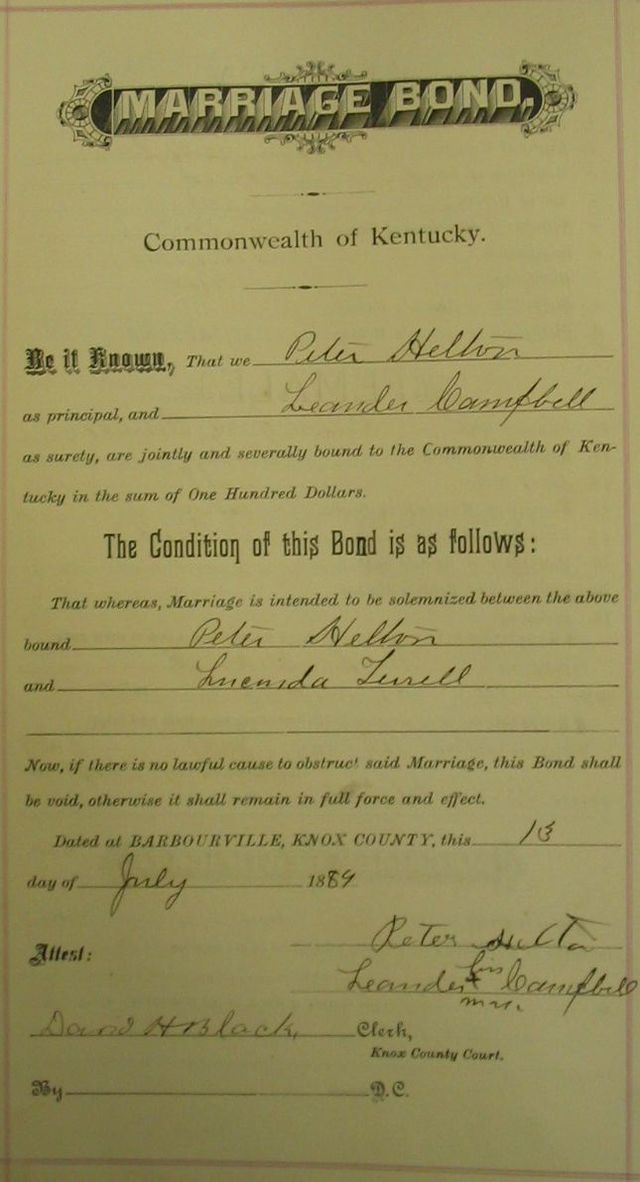 MARRIAGE BOND,
Commonwealth of Kentucky.
Be it Known, That we Peter Helton
as principal, and Leander Campbell
as surety, are jointly and severally bound to the Commonwealth of Ken-
tucky in the sum of One Hundred Dollars.
The Condition of this Bond is as follows:
That whereas, Marriage is intended to be solemnized between the above
bound Peter Helton
and Lucinda Terrell
Now, if there is no lawful cause to obstruct said Marriage, this Bond shall
be void, otherwise it shall remain in full force and effect.
Dated at BARBOURVILLE, KNOX COUNTY, this 13
day of July 1889
Peter Helton
Attest:
his
Leander x Campbell
David H Black, Clerk,
Knox County Court.
By D.C.